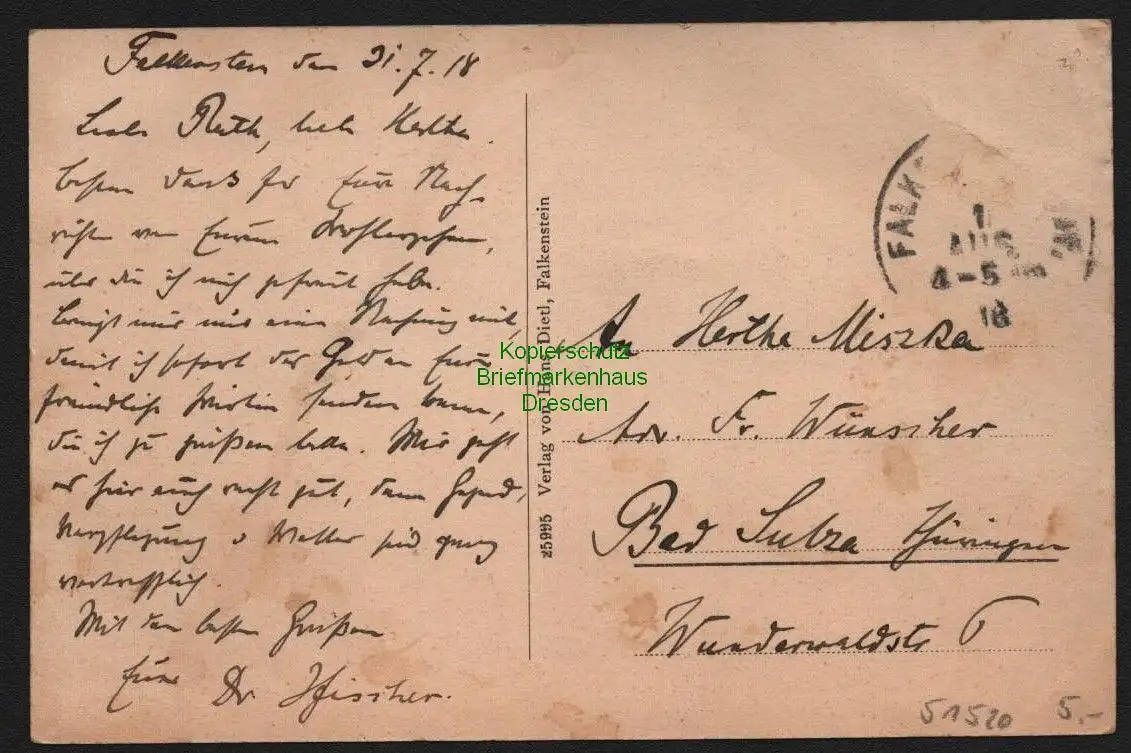 Falkenstein den 31.7.18
Liebe Ruth, liebe Hertha.
besten Dank für Eure Nach-
richten von Eurem Wohlergehen,
über die ich mich gefreut habe.
bringt mir nur eine Rechnung mit,
damit ich sofort das Geld an Eure
freundliche Wirtin senden kann,
die ich zu grüßen bitte. Mir geht
es hier auch recht gut, denn Gegend,
Verpflegung u Wetter sind ganz
vortrefflich.
Mit den besten Grüßen
Eure Dr Fischer.
25995 Verlag von Hans Dietl, Falkenstein
Kopierschutz
Briefmarkenhaus
Dresden
FALK
1
AUG
4-5
18
An Hertha Miszka
Adr. Fr. Wünscher
Bad Sulza Thüringen
Wunderwaldstr 6
51520 5,-